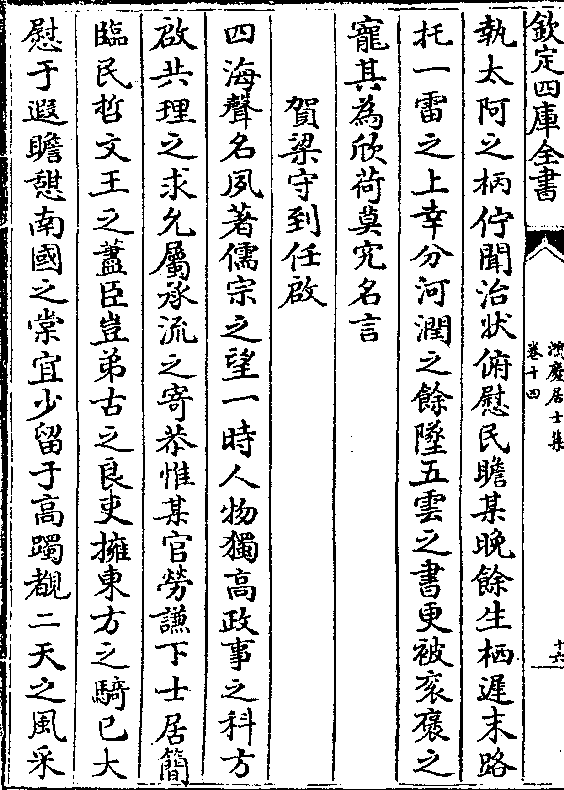 欽定四庫全書
鴻慶居士集
卷十四
十六
執太阿之柄佇聞治狀俯慰民瞻某晚餘生栖遲末路
托一雷之上幸分河潤之餘墜五雲之書更被衮襃之
寵其為欣荷莫究名言
賀梁守到任啟
四海聲名夙著儒宗之望一時人物獨高政事之科方
啟共理之求允屬承流之寄恭惟某官勞謙下士居簡
臨民哲文王之藎臣豈弟古之良吏擁東方之騎已大
慰于遐瞻憇南國之棠宜少留于高躅覩二天之風采